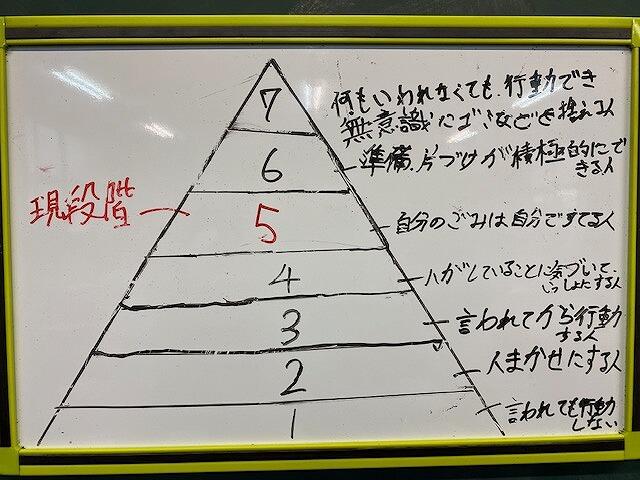 7
何もいわれなくても、行動でき
無意識にゴミなどを捨える人
6
準備、片づけが積極的にで
きる人
現段階
5
自分のごみは自分ですてる人
4
人がしていることに気づいて、
いっしょにする人
3
言われてから行動
する人
2
人まかせにする人
1
言われても行動
しない